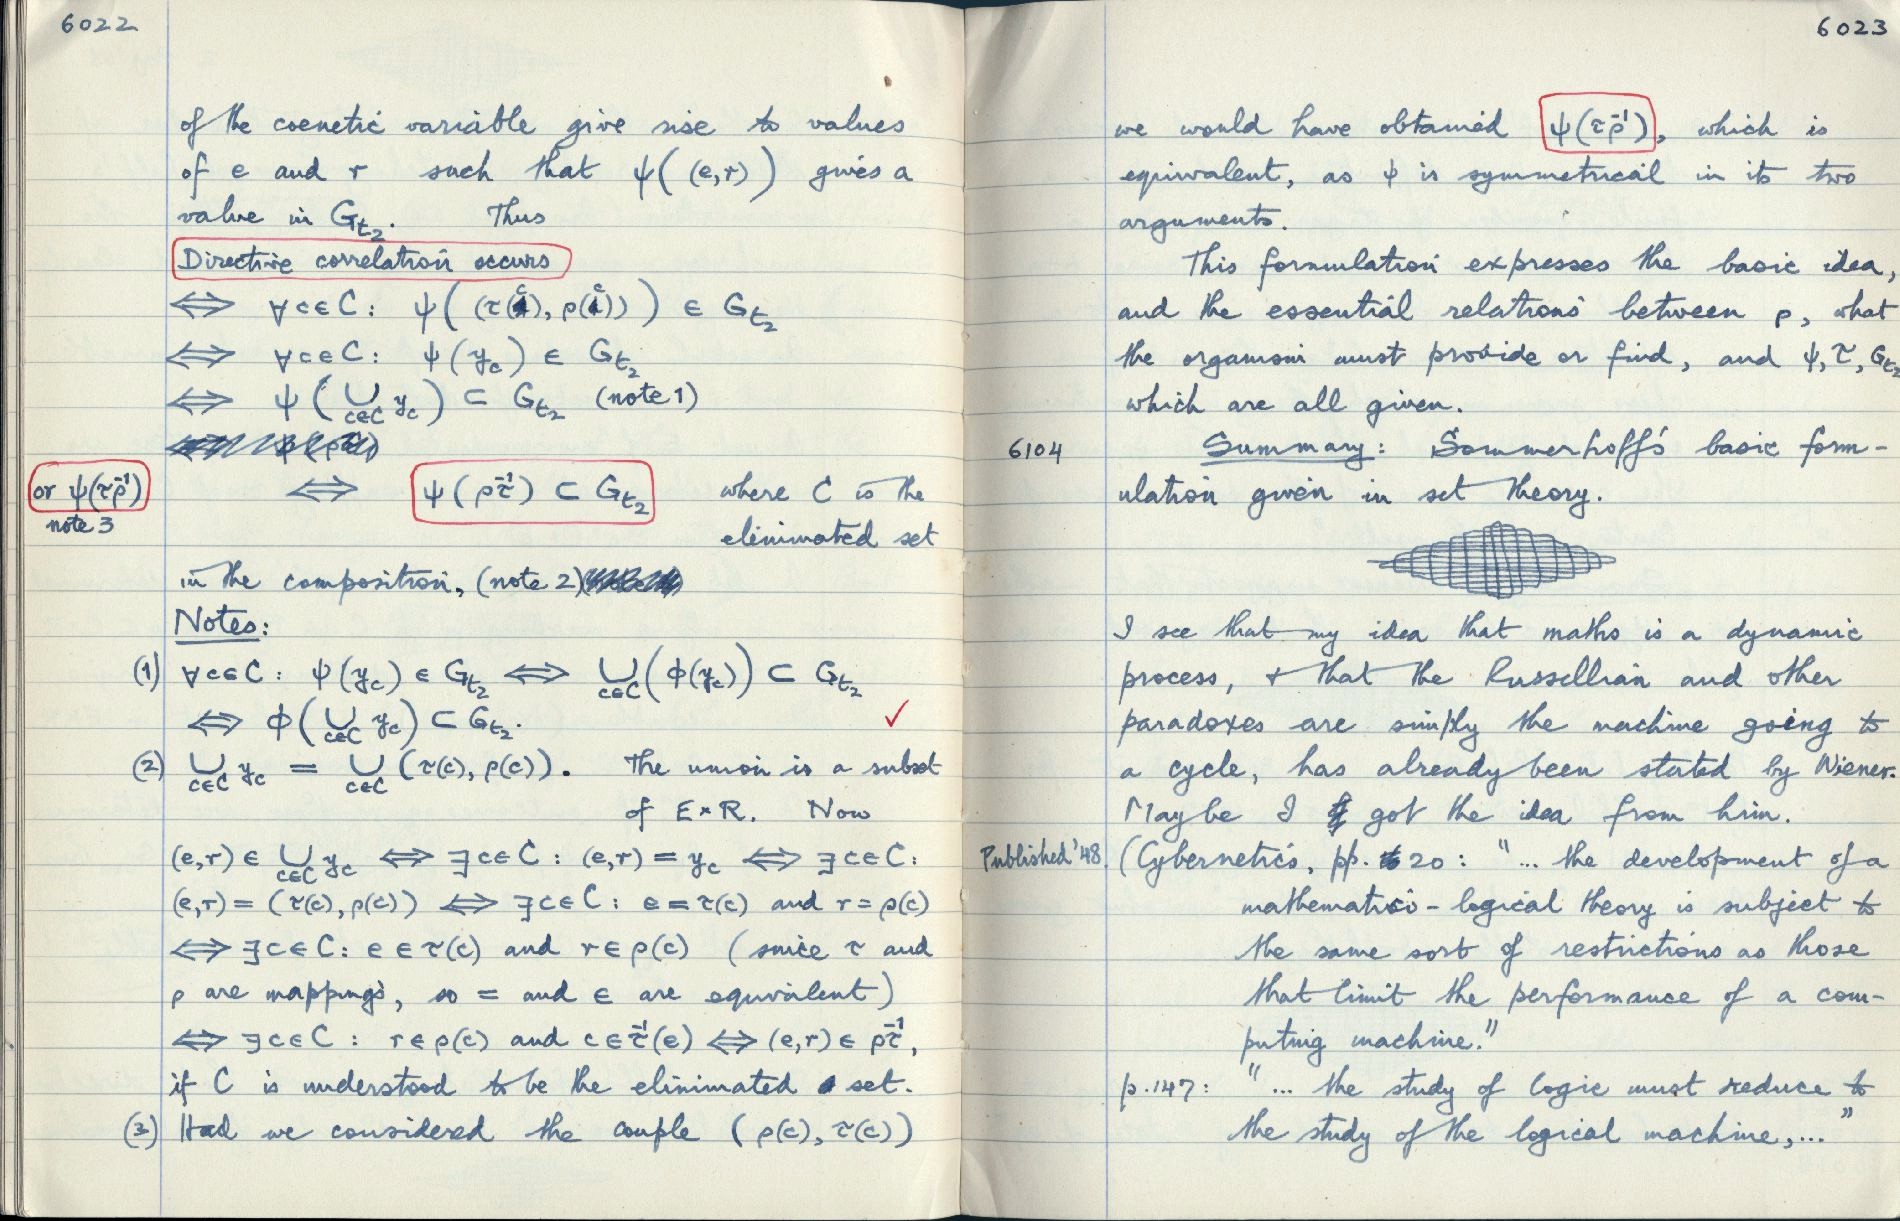 6022
of the coenetic variable give rise to values
of e and r such that ψ( (e,r) ) gives a
value in G_t₂. Thus
Directive correlation occurs
⟺ ∀c∈C: ψ( (τ(c), ρ(c)) ) ∈ G_t₂
⟺ ∀c∈C: ψ(y_c) ∈ G_t₂
⟺ ψ( ⋃_{c∈C} y_c ) ⊂ G_t₂ (note 1)
or ψ(τρ⁻¹)
note 3
⟺ ψ(ρτ⁻¹) ⊂ G_t₂ where C is the
eliminated set
in the composition, (note 2)
Notes:
(1) ∀c∈C: ψ(y_c) ∈ G_t₂ ⟺ ⋃_{c∈C}(ϕ(y_c)) ⊂ G_t₂
⟺ ϕ(⋃_{c∈C} y_c) ⊂ G_t₂. ✓
(2) ⋃_{c∈C} y_c = ⋃_{c∈C} (τ(c), ρ(c)). The union is a subset
of E×R. Now
(e,r) ∈ ⋃_{c∈C} y_c ⟺ ∃c∈C: (e,r) = y_c ⟺ ∃c∈C:
(e,r) = (τ(c), ρ(c)) ⟺ ∃c∈C: e = τ(c) and r = ρ(c)
⟺ ∃c∈C: e ∈ τ(c) and r ∈ ρ(c) (since τ and
ρ are mappings, so = and ∈ are equivalent)
⟺ ∃c∈C: r ∈ ρ(c) and c ∈ τ⁻¹(e) ⟺ (e,r) ∈ ρτ⁻¹,
if C is understood to be the eliminated set.
(3) Had we considered the couple (ρ(c), τ(c))
6023
we would have obtained ψ(τρ⁻¹), which is
equivalent, as ψ is symmetrical in its two
arguments.
This formulation expresses the basic idea,
and the essential relations between ρ, what
the organism must provide or find, and ψ, τ, G_t₂
which are all given.
6104 Summary: Sommerhoff's basic form-
ulation given in set theory.
I see that my idea that maths is a dynamic
process, + that the Russellian and other
paradoxes are simply the machine going to
a cycle, has already been stated by Wiener.
Maybe I got the idea from him.
Published '48. (Cybernetics, pp. 20: "... the development of a
mathematico-logical theory is subject to
the same sort of restrictions as those
that limit the performance of a com-
puting machine."
p.147: "... the study of logic must reduce to
the study of the logical machine,..."